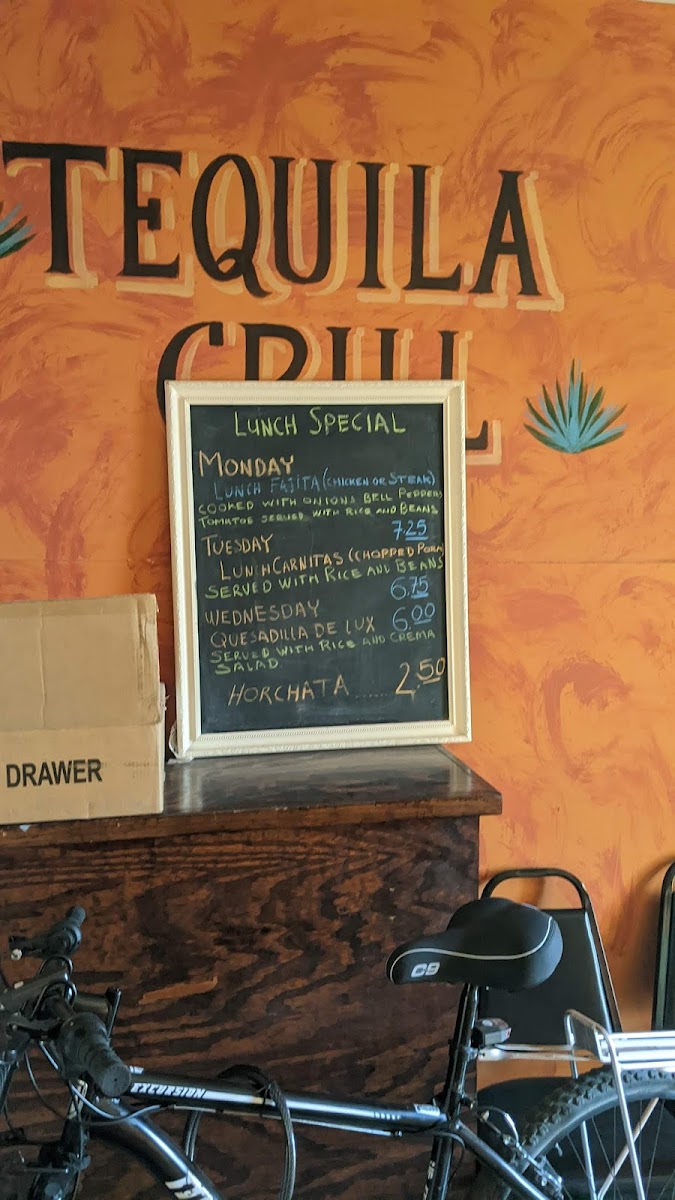 TEQUILA
GRILL
LUNCH SPECIAL
MONDAY
LUNCH FAJITA (CHICKEN OR STEAK)
COOKED WITH ONIONS BELL PEPPERS
TOMATOE SERVED WITH RICE AND BEANS
7.25
TUESDAY
LUNCH CARNITAS (CHOPPED PORK)
SERVED WITH RICE AND BEANS
6.75
WEDNESDAY
QUESADILLA DE LUX 6.00
SERVED WITH RICE AND CREMA
SALAD.
HORCHATA ...... 2.50
DRAWER
C9
EXCURSION